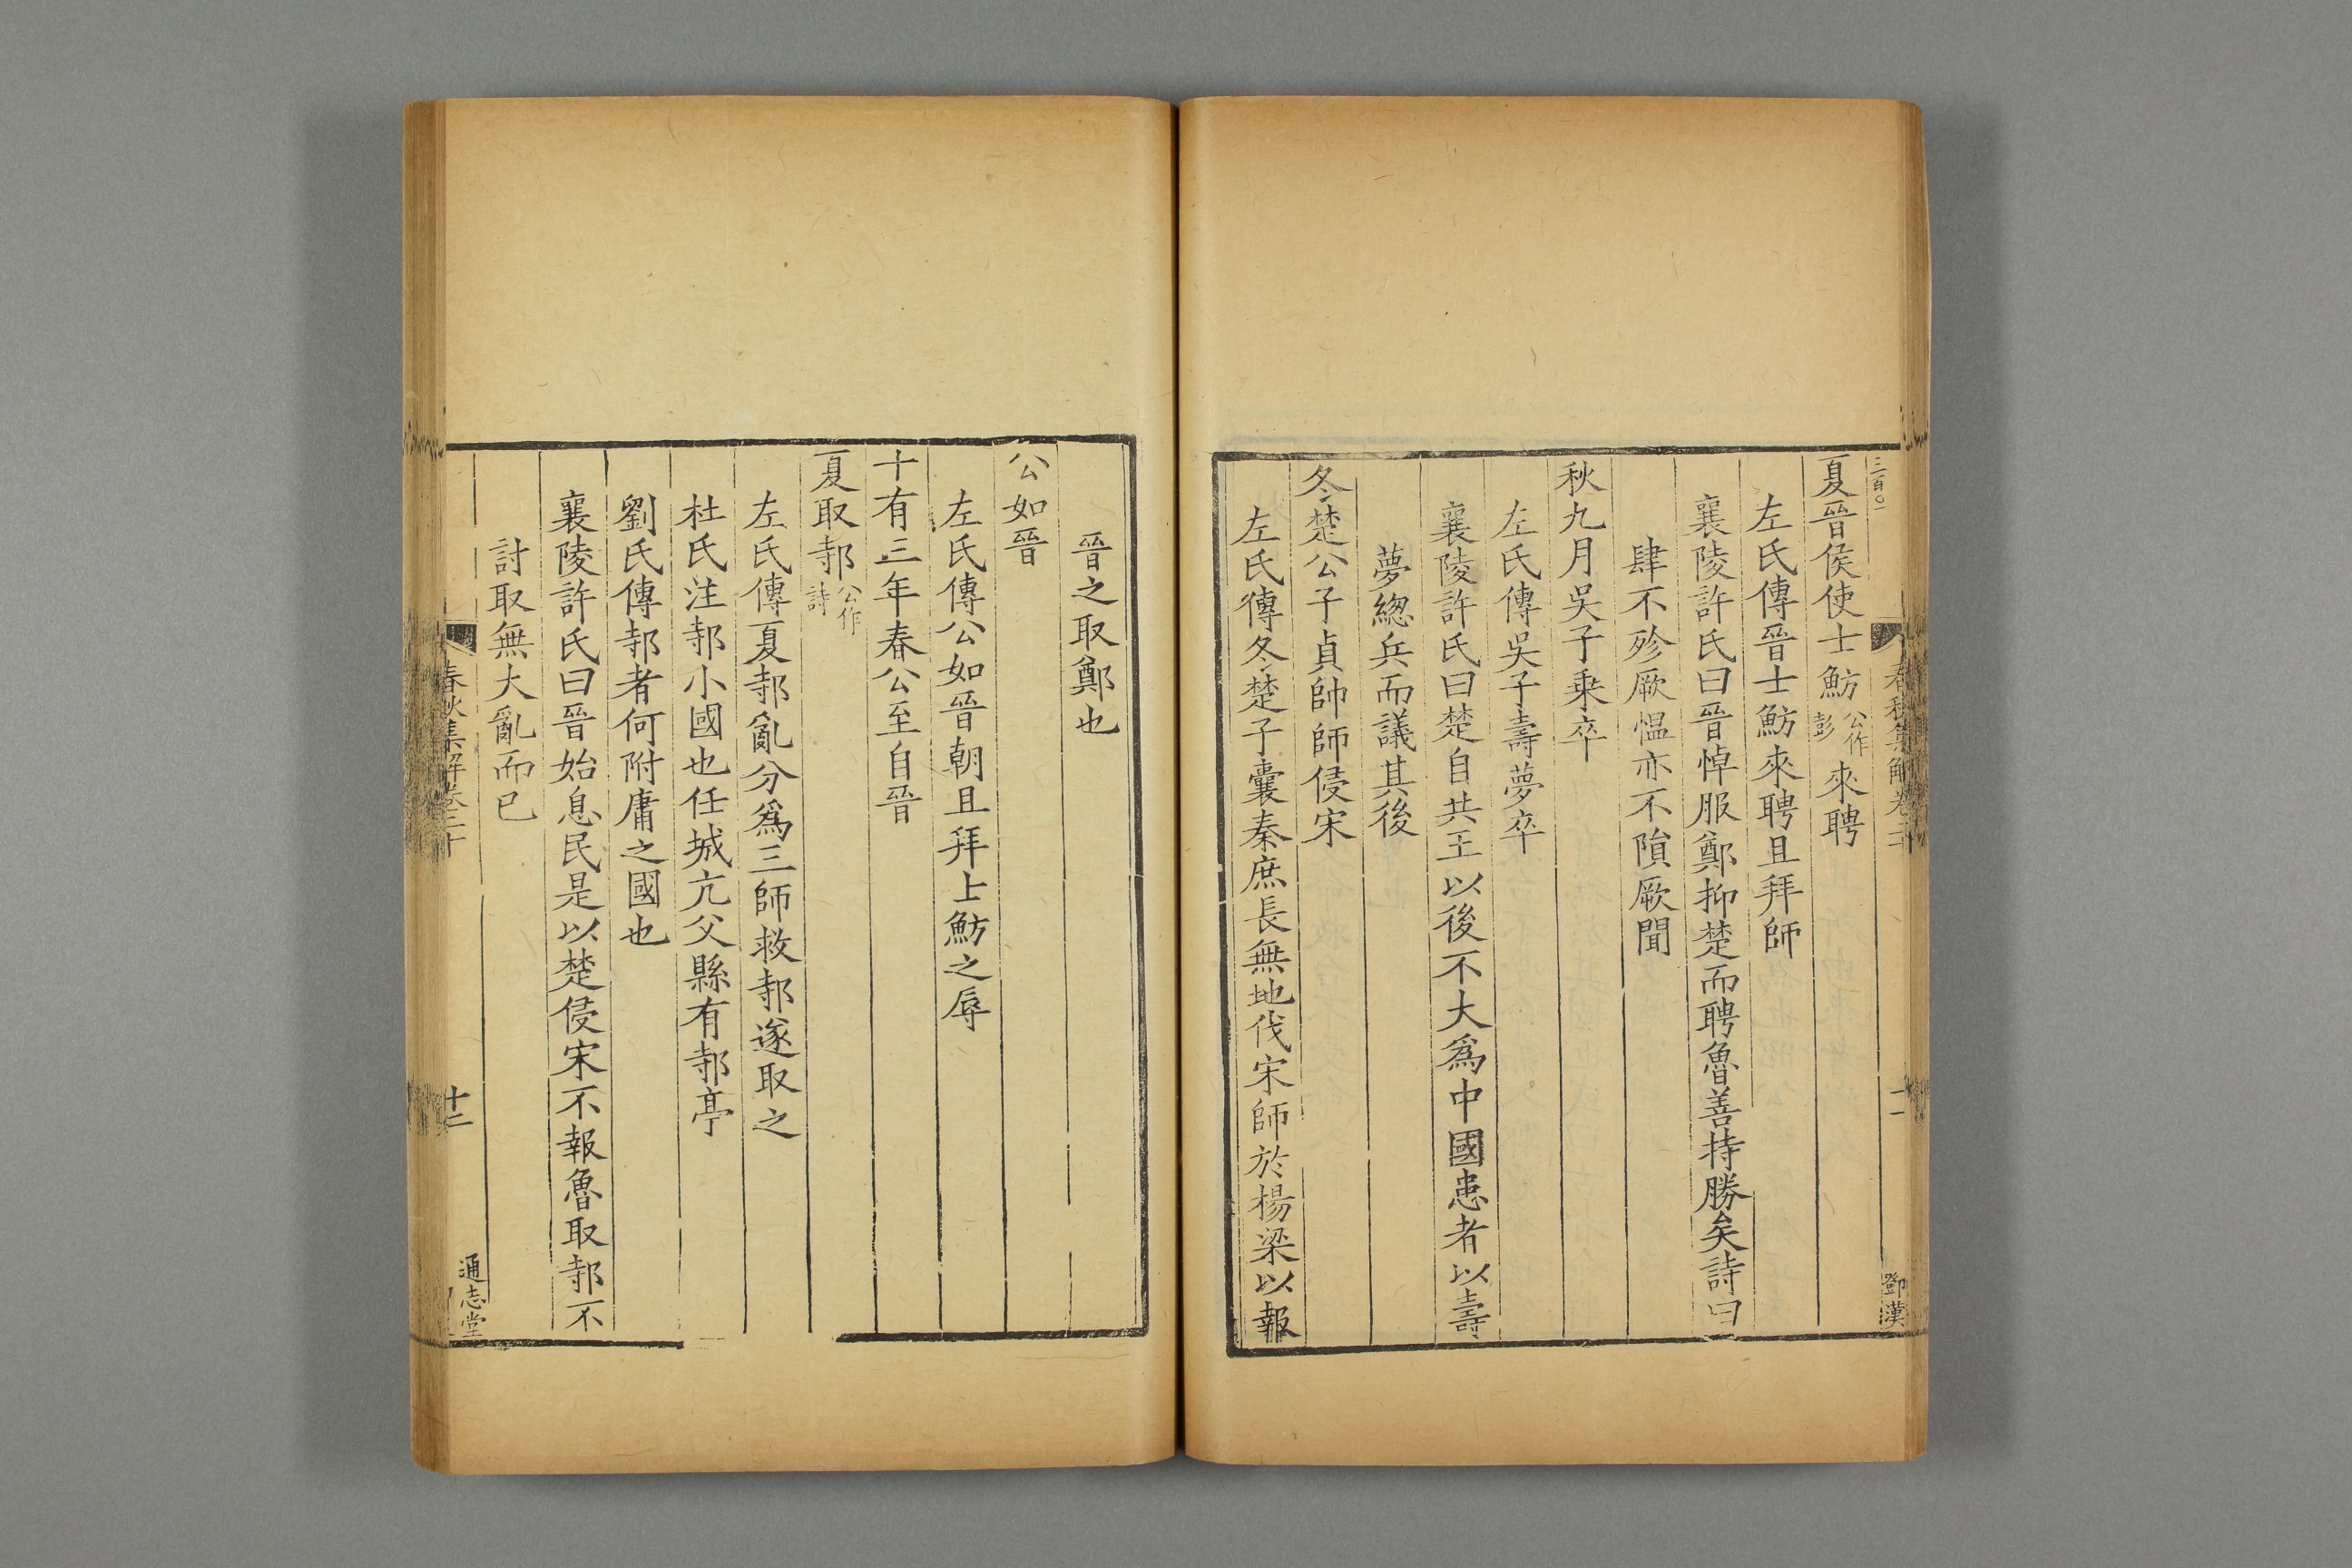 三百〇一
春秋集解卷二十
十一
鄧漢
夏晉侯使士魴公作彭來聘
左氏傳晉士魴來聘且拜師
襄陵許氏曰晉悼服鄭抑楚而聘魯善持勝矣詩曰
肆不殄厥愠亦不隕厥聞
秋九月吳子乘卒
左氏傳吳子壽夢卒
襄陵許氏曰楚自共王以後不大爲中國患者以壽
夢緫兵而議其後
冬楚公子貞帥師侵宋
左氏傳冬楚子囊秦庶長無地伐宋師於楊梁以報
晉之取鄭也
公如晉
左氏傳公如晉朝且拜士魴之辱
十有三年春公至自晉
夏取邿公作詩
左氏傳夏邿亂分爲三師救邿遂取之
杜氏注邿小國也任城亢父縣有邿亭
劉氏傳邿者何附庸之國也
襄陵許氏曰晉始息民是以楚侵宋不報魯取邿不
討取無大亂而已
春秋集解卷二十
十二
通志堂